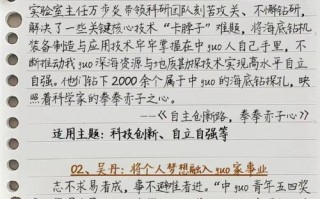 实验室主任万步炎带领科研团队刻苦攻关、不懈钻研,
解决了一些关键核心技术“卡脖子”难题,将海底钻机
装备制造与应用技术牢牢掌握在中guo人自己手里,不
断推动我guo深海资源与地质勘探技术实现高水平自立
自强。他们钻下2000余个属于中guo的海底钻探孔,映
照着科学家的拳拳赤子之心。
--《自主创新路,拳拳赤子心》
适用主题:科技创新、自立自强等
02、吴丹:将个人梦想融入guo家事业
志不求易者成,事不避难者进。“中guo青年五四奖